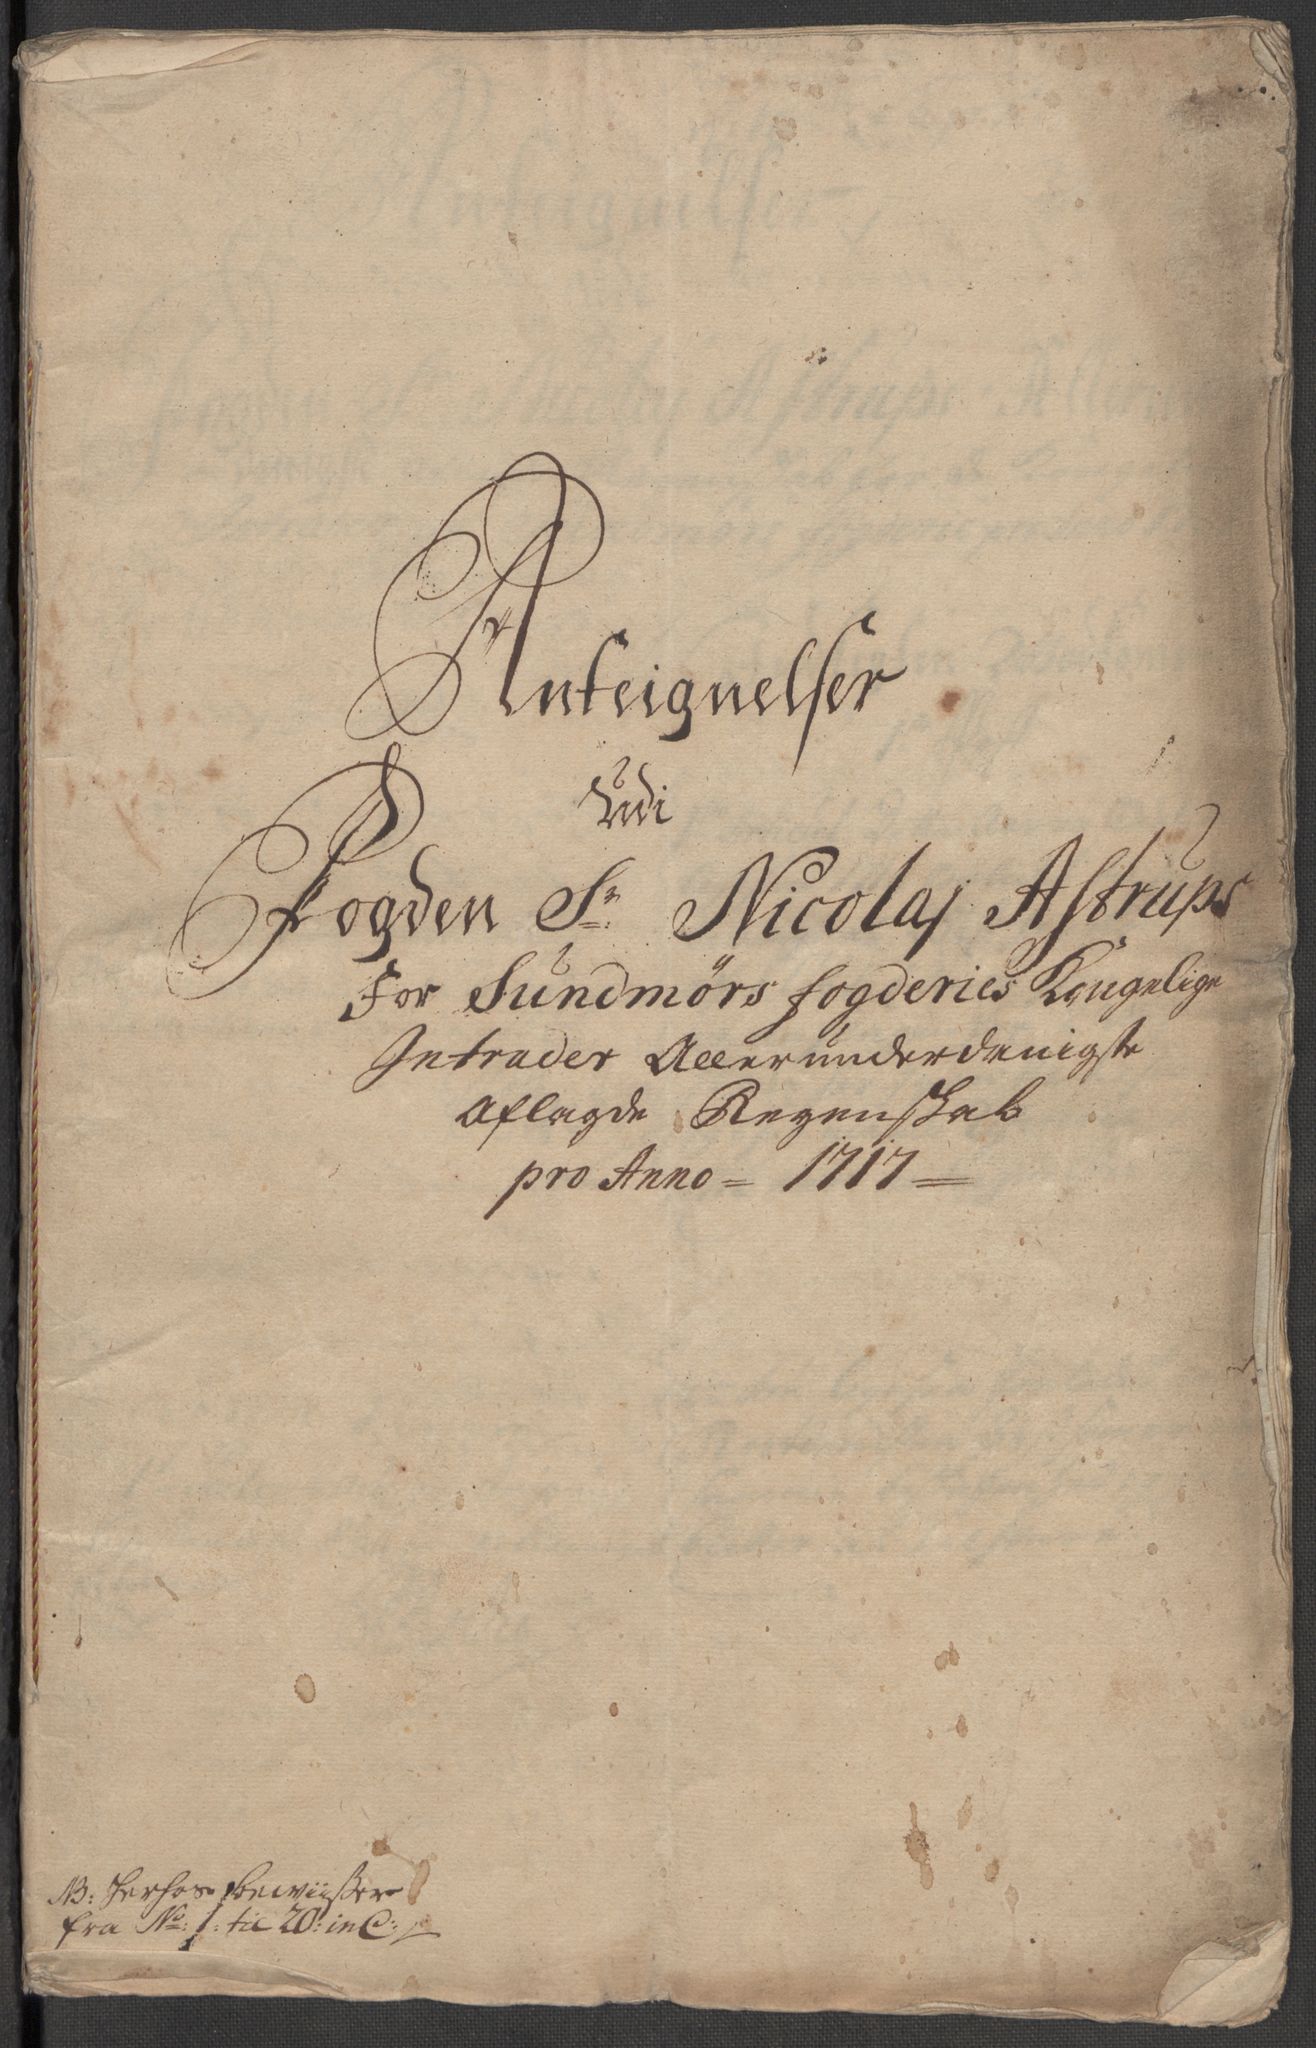 Anteignelser
Udi
Fogden Sr. Nicolaj Astrups
For Sundmörs fogderies Kongelige
Intrader Allerunderdanigste
Aflagde Regenskab
pro Anno = 1717 =
NB: Herhos bewiißer
fra No: 1: til 20: incl: